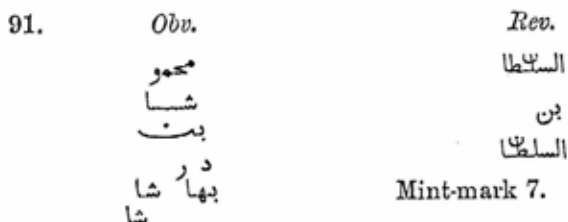 91. Obv. Rev.
محمو
شا
بن
د ر
بها شا
شا
السلطا
بن
السلطا
Mint-mark 7.